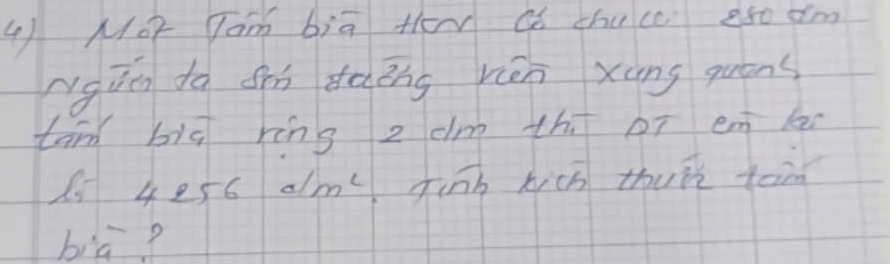 4) Một Tấm bìa HCN có chu vi 280 dm
Người ta sơn đường viền xung quanh
tấm bìa rộng 2 dm thì DT còn lại
là 4256 dm². Tính kích thước tấm
bìa?